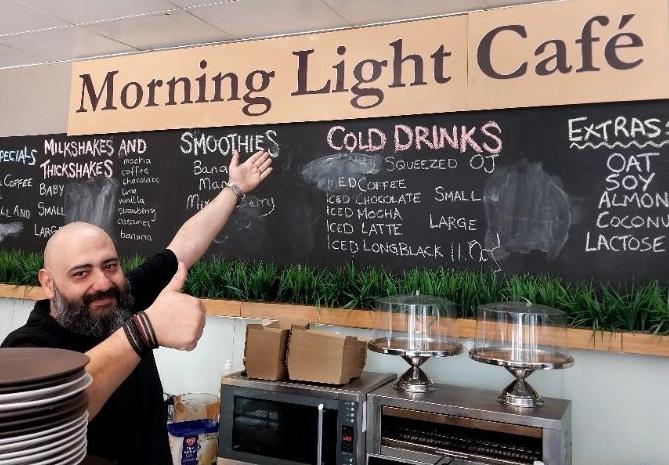 Morning Light Café
SPECIALS
COFFEE
AND
MILKSHAKES AND
THICKSHAKES
BABY
SMALL
LARGE
mocha
coffee
chocolate
lime
vanilla
strawberry
caramel
banana
SMOOTHIES
COLD DRINKS
SQUEEZED OJ
ICED COFFEE
ICED CHOCOLATE SMALL
ICED MOCHA
ICED LATTE LARGE
ICED LONG BLACK
EXTRAS
OAT
SOY
ALMON
COCONU
LACTOSE